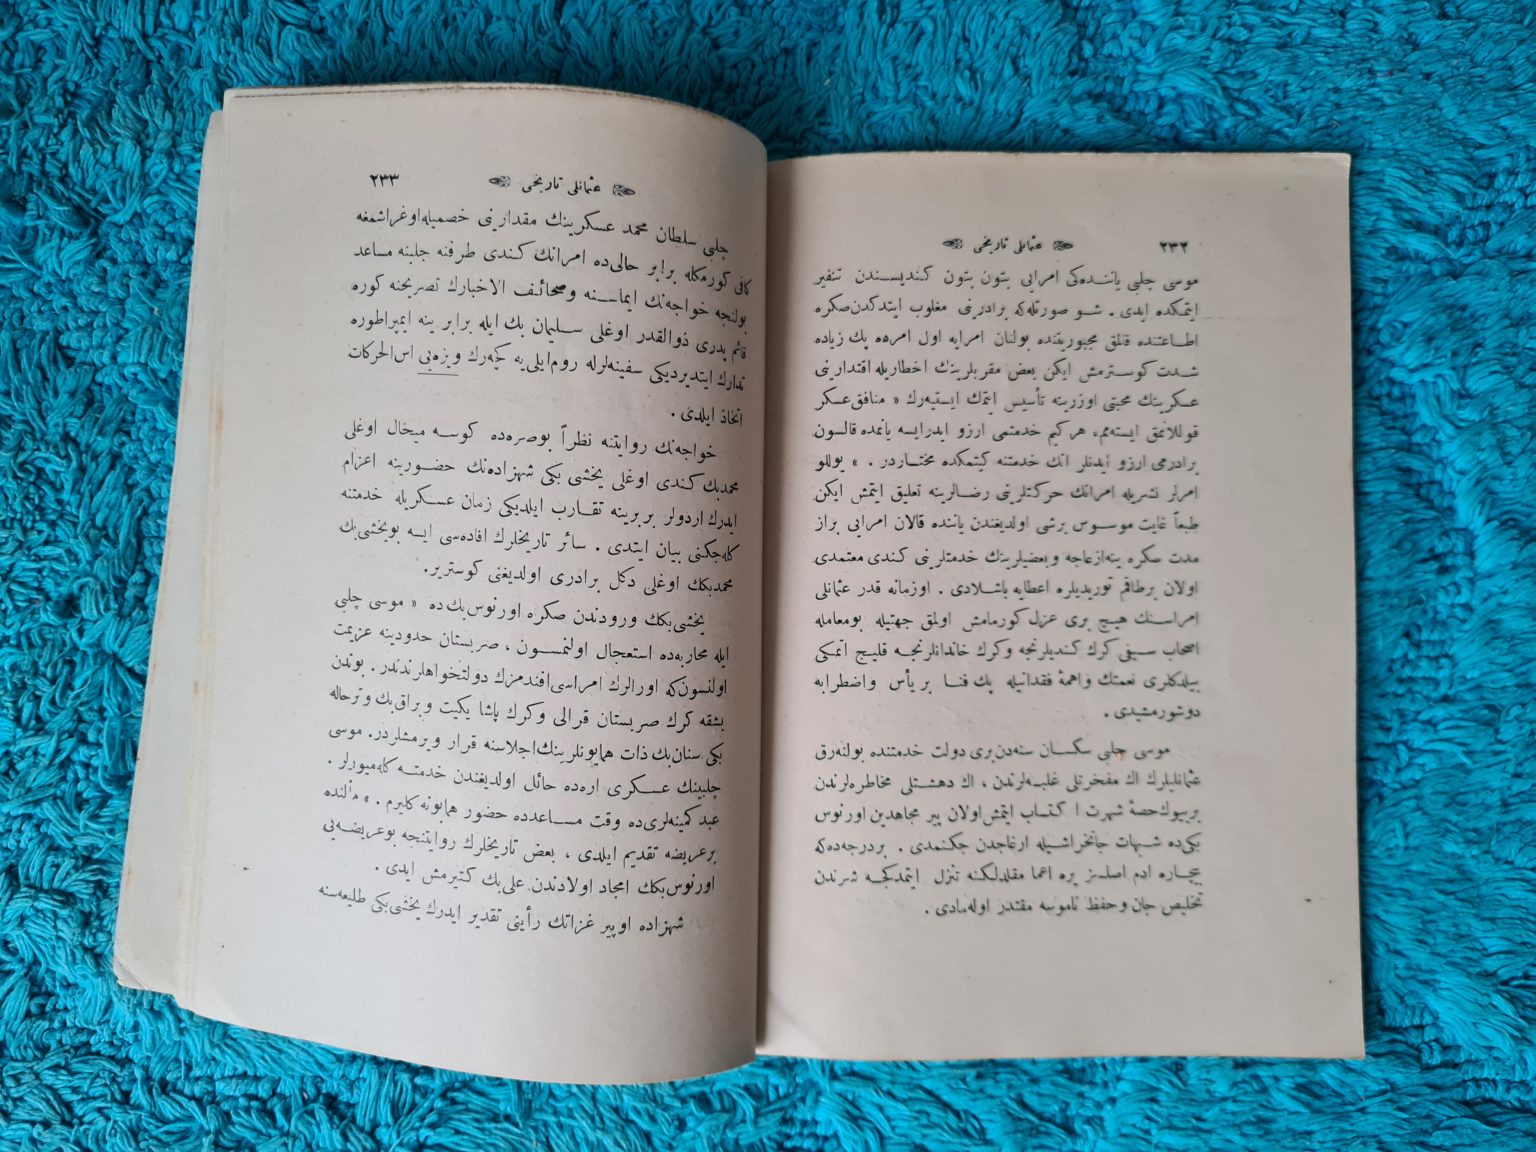 ٢٣٢ عثمانلی تاریخی
موسی چلبی یاننده‌کی امرایی بتون بتون کندیسندن تنفیر
ایتمکده ایدی . شو صورتله‌که برادرینی مغلوب ایتدکدن‌صکره
اطاعتنده قالمق مجبوریتنده بولنان امرایه اول امرده پك زیاده
شدت کوسترمش ایکن بعض مقربلرینك اخطاریله اقتدارینی
عسکرینك محبتی اوزرینه تأسیس ایتمك ایستیه‌رك « منافق‌عسکر
قوللانمق ایسته‌یم، هرکیم خدمتمی ارزو ایدرایسه یانمده قالسون
برادرمی ارزو ایدنلر انك خدمتنه کیتمکده مختاردر . » یوللو
امرلر نشریله امرانك حرکتلرینی رضالرینه تعلیق ایتمش ایکن
طبعاً غایت موسوس برشی اولدیغندن یاننده قالان امرایی براز
مدت صکره ینه‌ازعاجه وبعضیلرینك خدمتلرینی کندی معتمدی
اولان برطاقم توریدیلره اعطایه باشلادی . اوزمانه قدر عثمانلی
امراسنك هیچ بری عزل کورمامش اولمق جهتیله بومعامله
اصحاب سیفی کرك کندیلرنجه وکرك خاندانلرنجه قلیج اتمکی
بیلدکلری نعمتك واهمهٔ فقدانیله پك فنا بر یأس واضطرابه
دوشورمشیدی .
موسی چلبی سکسان سنه‌دن‌بری دولت خدمتنده بولنه‌رق
عثمانلیلرك اك مفخرتلی غلبه‌لرندن ، اك دهشتلی مخاطره‌لرندن
بربیوك‌حصهٔ شهرت ا کتساب ایتمش‌اولان پیر مجاهدین اورنوس
بکی‌ده شبهات جانخراشیله ازعاجدن چکنمدی . بردرجه‌ده‌که
بیچاره ادم اصلسز یره اعما مقلدلکنه تنزل ایتمدکجه شرندن
تخلیص جان وحفظ ناموسه مقتدر اوله‌مادی .
عثمانلی تاریخی ٢٣٣
چلبی سلطان محمد عسکرینك مقدارینی خصمیله‌اوغراشمغه
کافی کورمکله برابر حالی‌ده امرانك کندی طرفنه جلبنه مساعد
بولنجه خواجه‌نك ایماسنه وصحائف الاخبارك تصریحنه کوره
قائم پدری ذوالقدر اوغلی سلیمان بك ایله برابر ینه ایمپراطوره
تدارك ایتدیردیکی سفینه‌لرله روم‌ایلی‌یه کچه‌رك ویزه‌یی اس‌الحرکات
اتخاذ ایلدی .
خواجه‌نك روایتنه نظراً بوصره‌ده کوسه میخال اوغلی
محمدبك کندی اوغلی یخشی بکی شهزاده‌نك حضورینه اعزام
ایدرك‌اردولر بربرینه تقارب ایلدیکی زمان عسکریله خدمتنه
کله‌جکنی بیان ایتدی . سائر تاریخلرك افاده‌سی ایسه بویخشی‌بك
محمدبکك اوغلی دکل برادری اولدیغنی کوستریر.
یخشی‌بکك ورودندن صکره اورنوس‌بك‌ده « موسی چلبی
ایله محاربه‌ده استعجال اولنمسون ، صربستان حدودینه عزیمت
اولنسون‌که اورالرك امراسی‌افندمزك دولتخواهلرندندر . بوندن
بشقه کرك صربستان قرالی وکرك پاشا یکیت وبراق‌بك وترحاله
بکی سنان‌بك ذات همایونلرینك‌اجلاسنه قرار ویرمشلردر. موسی
چلبینك عسکری اره‌ده حائل اولدیغندن خدمته کله‌میورلر .
عبد کمینه‌لری‌ده وقت مساعدده حضور همایونه کلیرم . » مألنده
برعریضه تقدیم ایلدی ، بعض تاریخلرك روایتنجه بوعریضه‌یی
اورنوس‌بکك امجاد اولادندن علی‌بك کتیرمش ایدی .
شهزاده اوپیر غزاتك رأینی تقدیر ایدرك یخشی‌بکی طلیعه‌سنه